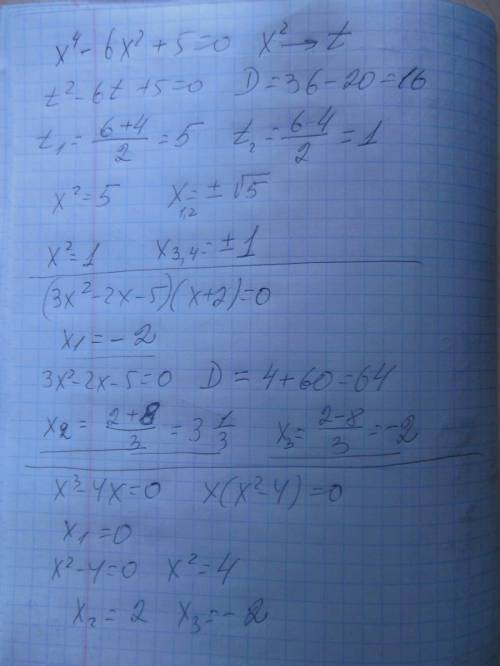 x⁴ - 6x² + 5 = 0   x² → t
t² - 6t + 5 = 0   D = 36 - 20 = 16
t₁ = (6+4)/2 = 5   t₂ = (6-4)/2 = 1
x² = 5   x₁,₂ = ± √5
x² = 1   x₃,₄ = ± 1
(3x² - 2x - 5)(x + 2) = 0
x₁ = - 2
3x² - 2x - 5 = 0   D = 4 + 60 = 64
x₂ = (2+8)/3 = 3 1/3   x₃ = (2-8)/3 = -2
x³ - 4x = 0   x(x² - 4) = 0
x₁ = 0
x² - 4 = 0   x² = 4
x₂ = 2   x₃ = - 2